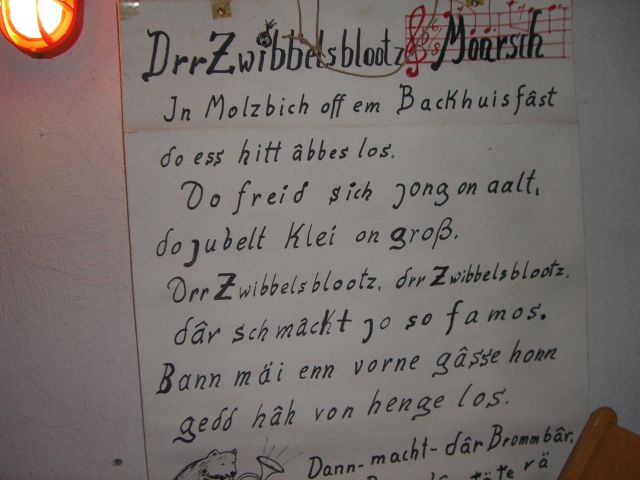 Drr Zwibbelsblootz Moarsch
Jn Molzbich off em Backhuisfâst
do ess hitt âbbes los.
Do freid sich jong on aalt,
do jubelt Klei on groß.
Drr Zwibbelsblootz, drr Zwibbelsblootz,
dâr schmâckt jo so famos.
Bann mäi enn vorne gâsse honn
gedd hâh von henge los.
Dann-macht-dâr Brommbâr,